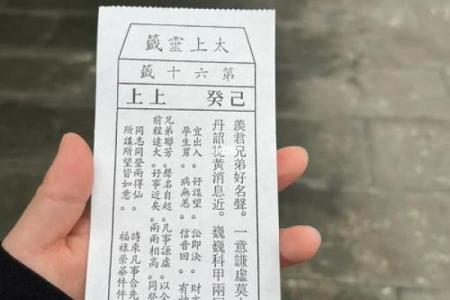 太上靈籤
第六十籤
己癸 上上
羨君兄弟好名聲。一意謙虛莫
丹詔槐黃消息近。巍巍科甲兩同
宜出入。好謀望。訟即決。財
孕生男。病無恙。信音回。有
兄弟聯芳。聲名自起。凡事謙虛。以全
前程遠大。好事近矣。兩兩相高。同登
同志同登兩得仙。時來凡事合先
所謀所望皆如意。福祿榮華件件